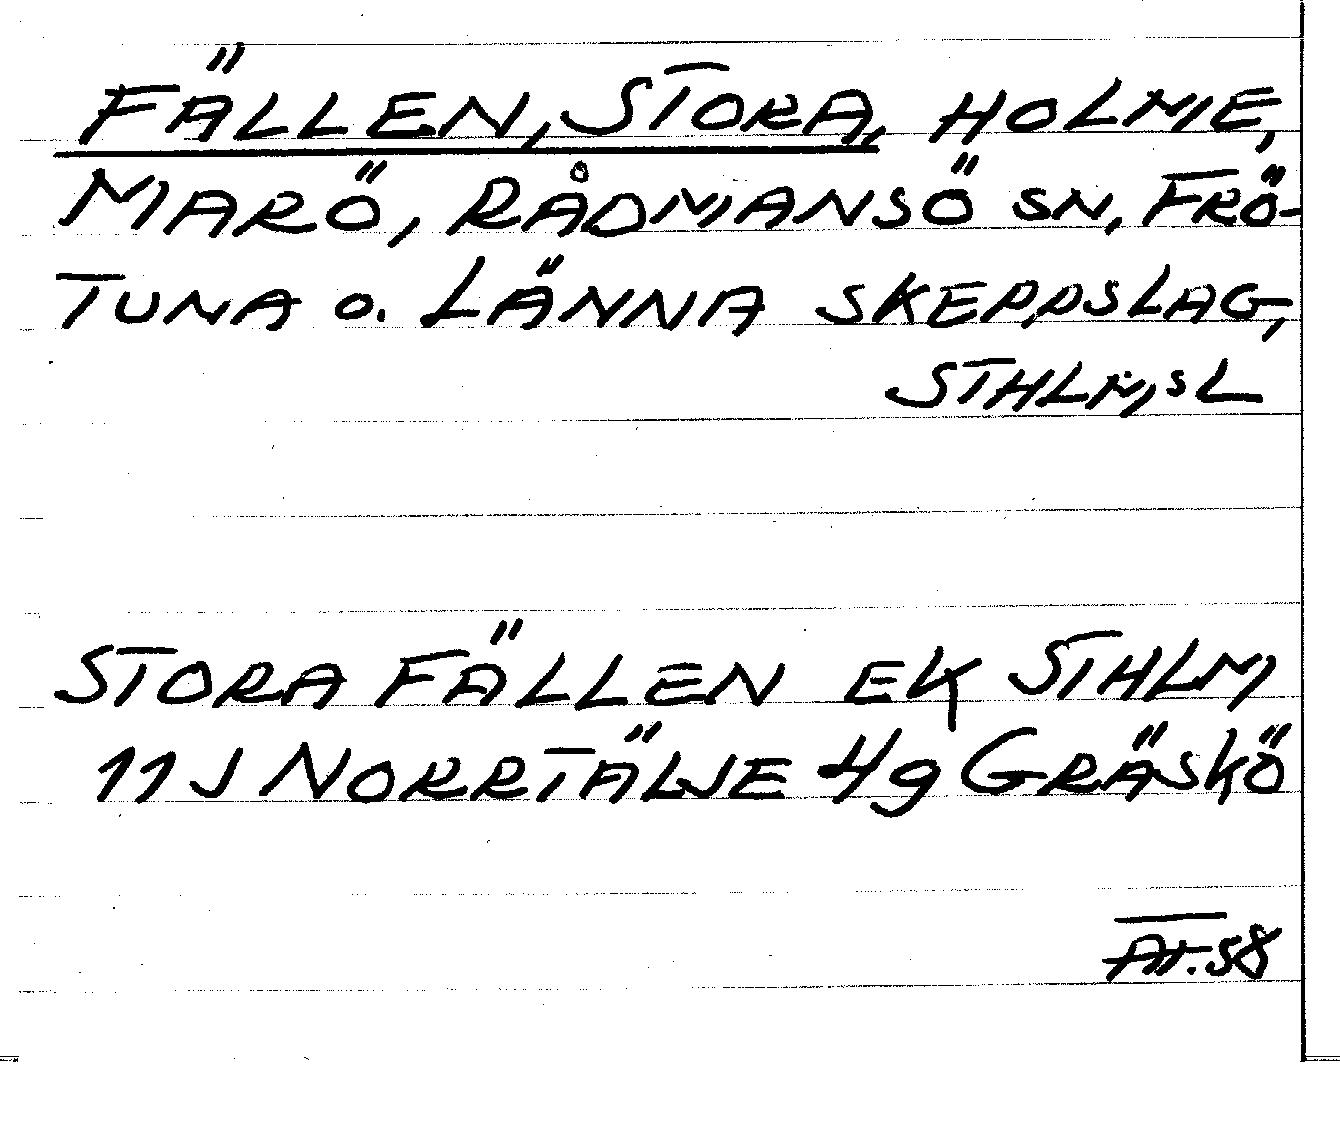 FÄLLEN, STORA, HOLME,
MARÖ, RÅDMANSÖ SN, FRÖ-
TUNA o. LÄNNA SKEPPSLAG,
STHLM,S L
STORA FÄLLEN EK STHLM
11J NORRTÄLJE 4g GRÄSKÖ
58